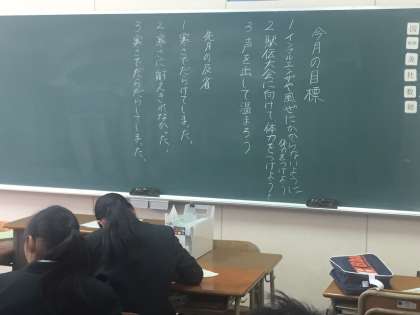 今月の目標
1 インフルエンザや風ぜにかからないように
気をつけよう
2 駅伝大会に向けて体力をつけよう！
3 声を出して温まろう
先月の反省
1 寒さでだらけてしまった。
2 寒さに耐えきれなかった。
3 寒さでだらだらしてしまった。
国
英
社
数